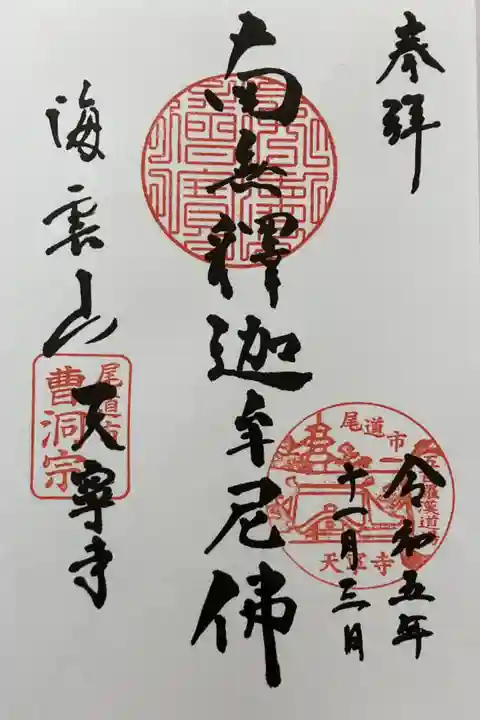 奉拝
令和五年
十一月三日
南無釋迦牟尼佛
海雲山
天寧寺
尾道市
天寧寺
尾道市
曹洞宗